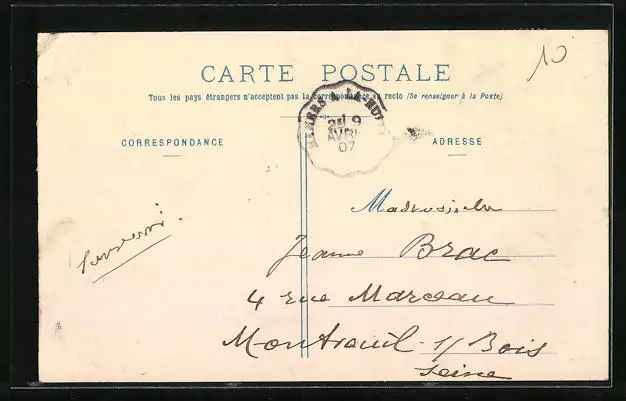 10
CARTE POSTALE
Tous les pays étrangers n'acceptent pas la correspondance au recto (Se renseigner à la Poste)
CORRESPONDANCE
ADRESSE
AVRIL
07
Mademoiselle
Jeanne Brac
4 rue Marceau
Montreuil s/ Bois
Seine